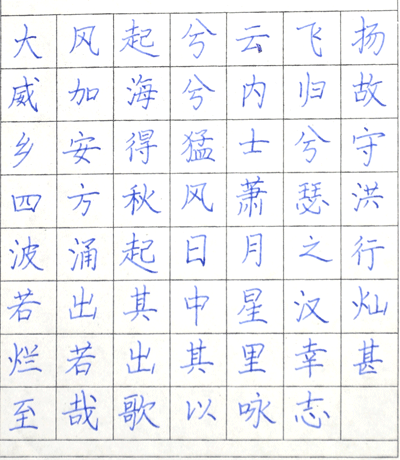 大风起兮云飞扬
威加海兮内归故
乡安得猛士兮守
四方秋风萧瑟洪
波涌起日月之行
若出其中星汉灿
烂若出其里幸甚
至哉歌以咏志